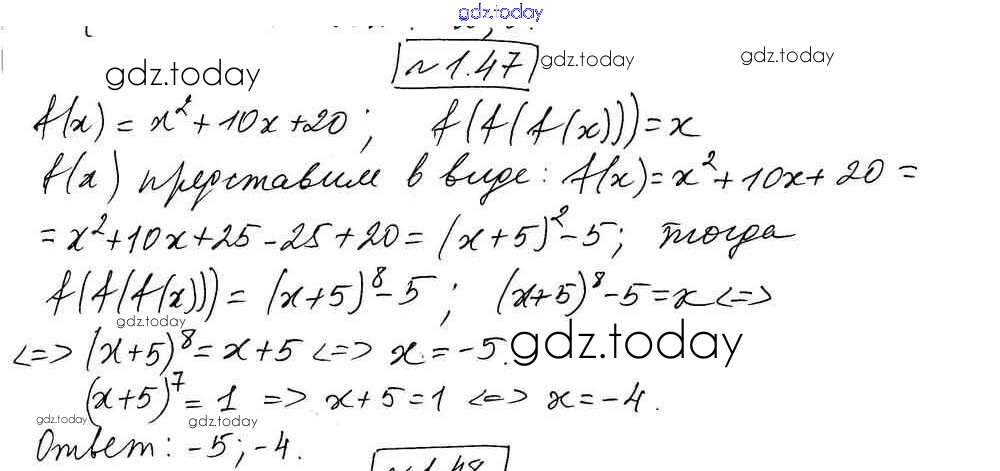 gdz.today
№1.47
gdz.today gdz.today gdz.today
f(x) = x² + 10x + 20; f(f(f(x))) = x
f(x) представим в виде: f(x) = x² + 10x + 20 =
= x² + 10x + 25 - 25 + 20 = (x+5)² - 5; тогда
f(f(f(x))) = (x+5)⁸ - 5; (x+5)⁸ - 5 = x <=>
gdz.today
<=> (x+5)⁸ = x + 5 <=> x = -5. gdz.today
(x+5)⁷ = 1 => x + 5 = 1 <=> x = -4.
gdz.today gdz.today
Ответ: -5; -4.
№1.48